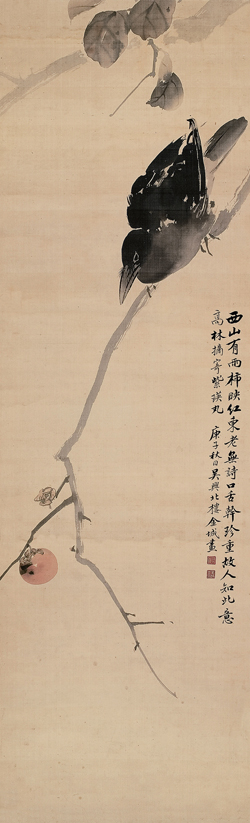 西山有雨柿映红東老無詩口舌幹珍重故人知此意
高林摘寄紫瑛丸 庚子秋日吴興北樓金城畫